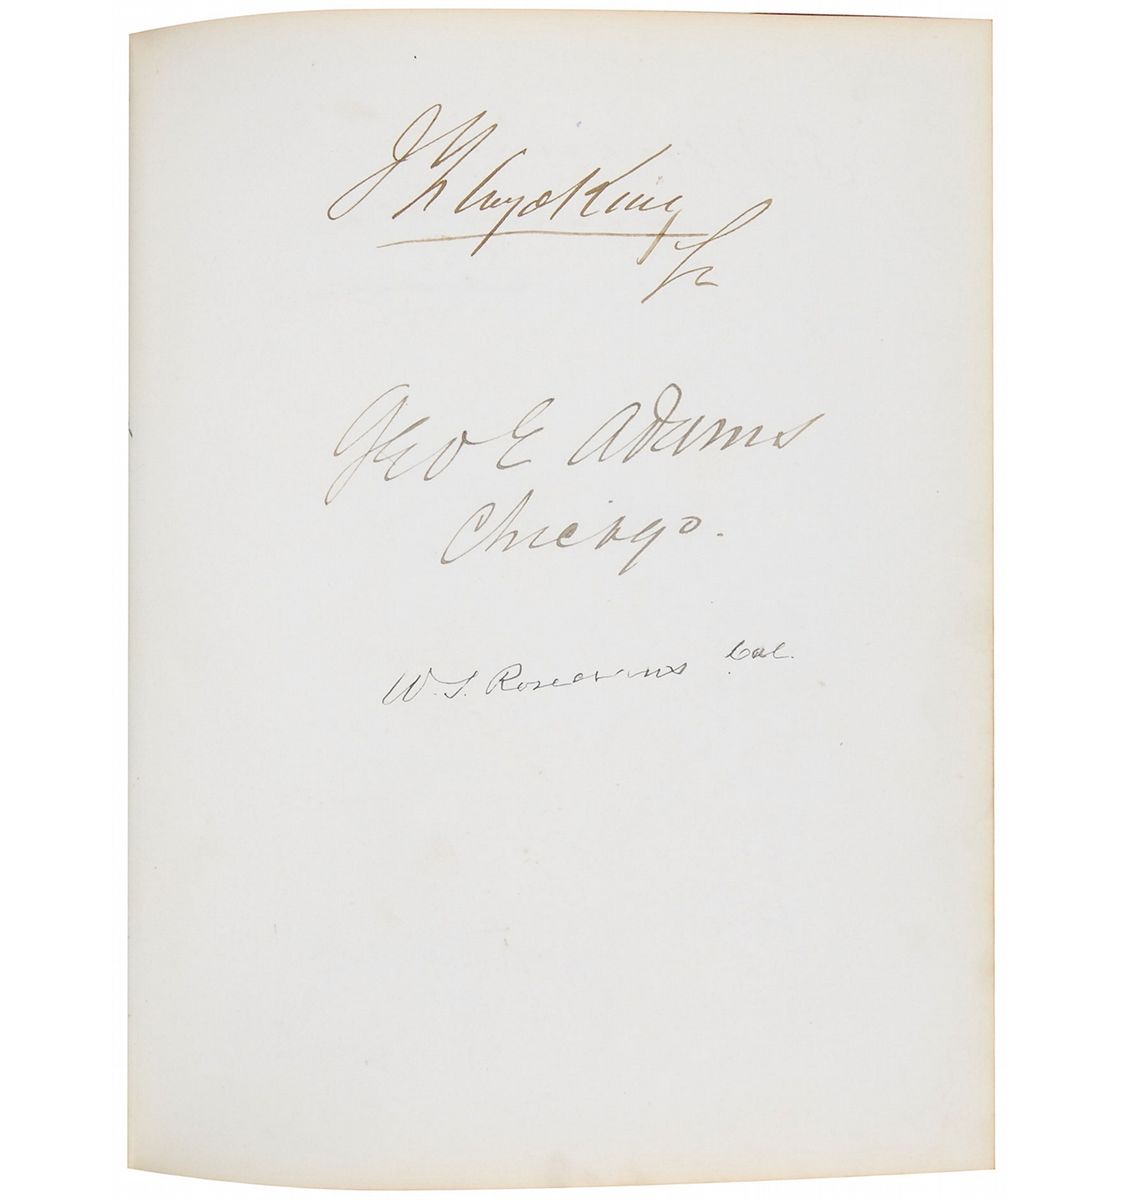 J Floyd King
La
Geo E Adams
Chicago.
W. S. Rosecrans Cal.